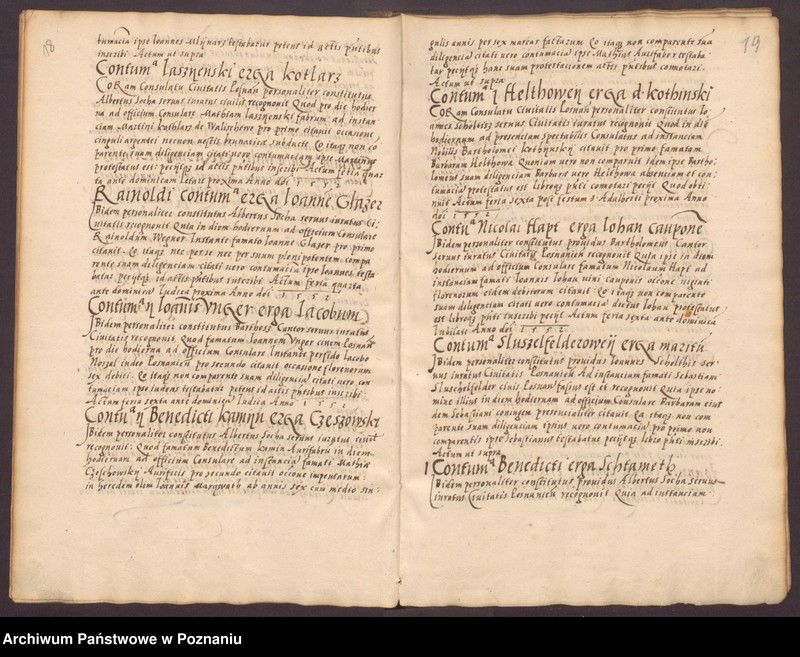 18
tumacia ipse Ioannes Mlÿnars testabatur petens id actis ptibus
inscribi Actum ut supra
Contumª Iasznenski erga kotlarz
CORam Consulatu Civitatis Posnan personaliter constitutus
Albertus Socha servus iuratus civilis recognovit Quod pro die hodier
na ad officium Consulare Mathiam Iasznenski fabrum ad instan
ciam Martini kothlarz de Valischewo pro primo citavit occasione
cinguli argentei necnon vestis brunatica subducte Co itaqz non co
parente suam diligenciam citati vero contumaciam ipse Martinus
protestatus est: petÿtqz id actis ptibus inscribi Actum feria quar
ta ante dominicam Letare proxima Anno doi 1552
Rainoldi contumª erga Ioanne Glazer
Ibidem personaliter constitutus Albertus Socha servus iuratus Ci
vitatis recognovit Quia in diem hodiernum ad officium Consulare
Rainoldum Wegner Instante famato Ioanne Glazer pro primo
citavit. Co itaqz nec per se nec per suum plenipotentem compa
rente suam diligenciam citati vero contumacia ipse Ioannes testa
batur petÿtqz id actis ptibus inscribi Actum feria quarta
ante dominica Iudica proxima Anno doi 1552
Contumª ÿ Ioanis Vnger erga Iacobum
Ibidem personaliter constitutus Barthoss Cantor servus iuratus
Civitatis recognovit Quod famatum Ioannem Vnger civem Posnan
pro die hodierna ad officium Consulare Instante perfido Iacobo
Nossal Iudeo Posnanien pro secundo citavit occasione florenorum
sex debiti. Co itaqz non comparente suam diligenciam citati vero con
tumaciam ipse iudeus testabatur petens id actis ptibus inscribi
Actum feria sexta ante dominica Iudica Anno 1552
Contuª ÿ Benedicti kamÿn erga Czeszowski
Ibidem personaliter constitutus Albertus Socha servus iuratus civit
recognovit: Quod famatum Benedictum kamin Aurifabru in diem
hodiernum ad officium Consulare ad instancia famati Mathie
Czeschowskÿ Aurificis pro secundo citavit occone
in heredem olim Ioannis ab annis sex cum medio sin
19
gulis annis per sex marcas factarum Co itaqz non comparente sua
diligencia citati vero contumacia ipse Mathias Aurifabor testaba
tur petÿtqz hanc suam protestacionem actis ptibus connotari.
Actum ut supra
Contumª ÿ Helthowen erga d. kothinski
CORam Consulatu Civitatis Posnan personaliter constitutus Io
annes Scholtis servus Civitatis iuratus recognovit Quod in die
hodiernum ad presenciam Spectabilis Consulatus ad instanciam
Nobilis Bartholomei kothÿnskÿ citavit pro primo famatam
Barbaram Helthowa Quoniam vero non comparuit idem ipse Bartho
lomeus suam diligenciam Barbare vero Helthowa absenciam et con
tumacia protestatus est librosqz ptes comotari petÿt Quod obti
nuit Actum feria sexta post festum S Adalberti proxima Anno
doi 1552
Contuª Nicolai Hapt erga Iohan Caupone
Ibidem personaliter constitutus providus Bartholomeus Cantor
servus iuratus Civitatis Posnanien recognovit Quia ipse in diem
hodiernum ad officium Consulare famatum Nicolaum Hapt ad
instanciam famati Ioannis Iohan vini cauponis occone viginti
florenorum eidem debitorum citavit. Co itaqz non comparente
suam diligenciam citati vero contumacia dictus Iohan protestatus
est librosqz ptes inscribi petÿt Actum feria sexta ante dominica
Iubilate Anno doi 1552
Contumª Sluszelfelderoweÿ erga maritu
Ibidem personaliter constitutus providus Ioannes Scholthis ser
vus iuratus Civitatis Posnanien Ad instanciam famati Sebastiani
Sluschelfelder civis Posnan fassus est et recognovit Quia ipse no
mine illius in diem hodiernum ad officium Consulare Barbaram eius
dem Sebastiani coniugem presencialiter citavit Ea itaqz non com
parente suam diligenciam ipsius vero contumacia pro primo non
comparentis ipse Sebastianus testabatur petÿtqz libro ptes inscribi.
Actum ut supra
Contumª Benedicti erga Schtameth
Ibidem personaliter constitutus Providus Albertus Socha servus
iuratus Civitatis Posnanien recognovit Quia ad instanciam
Archiwum Państwowe w Poznaniu